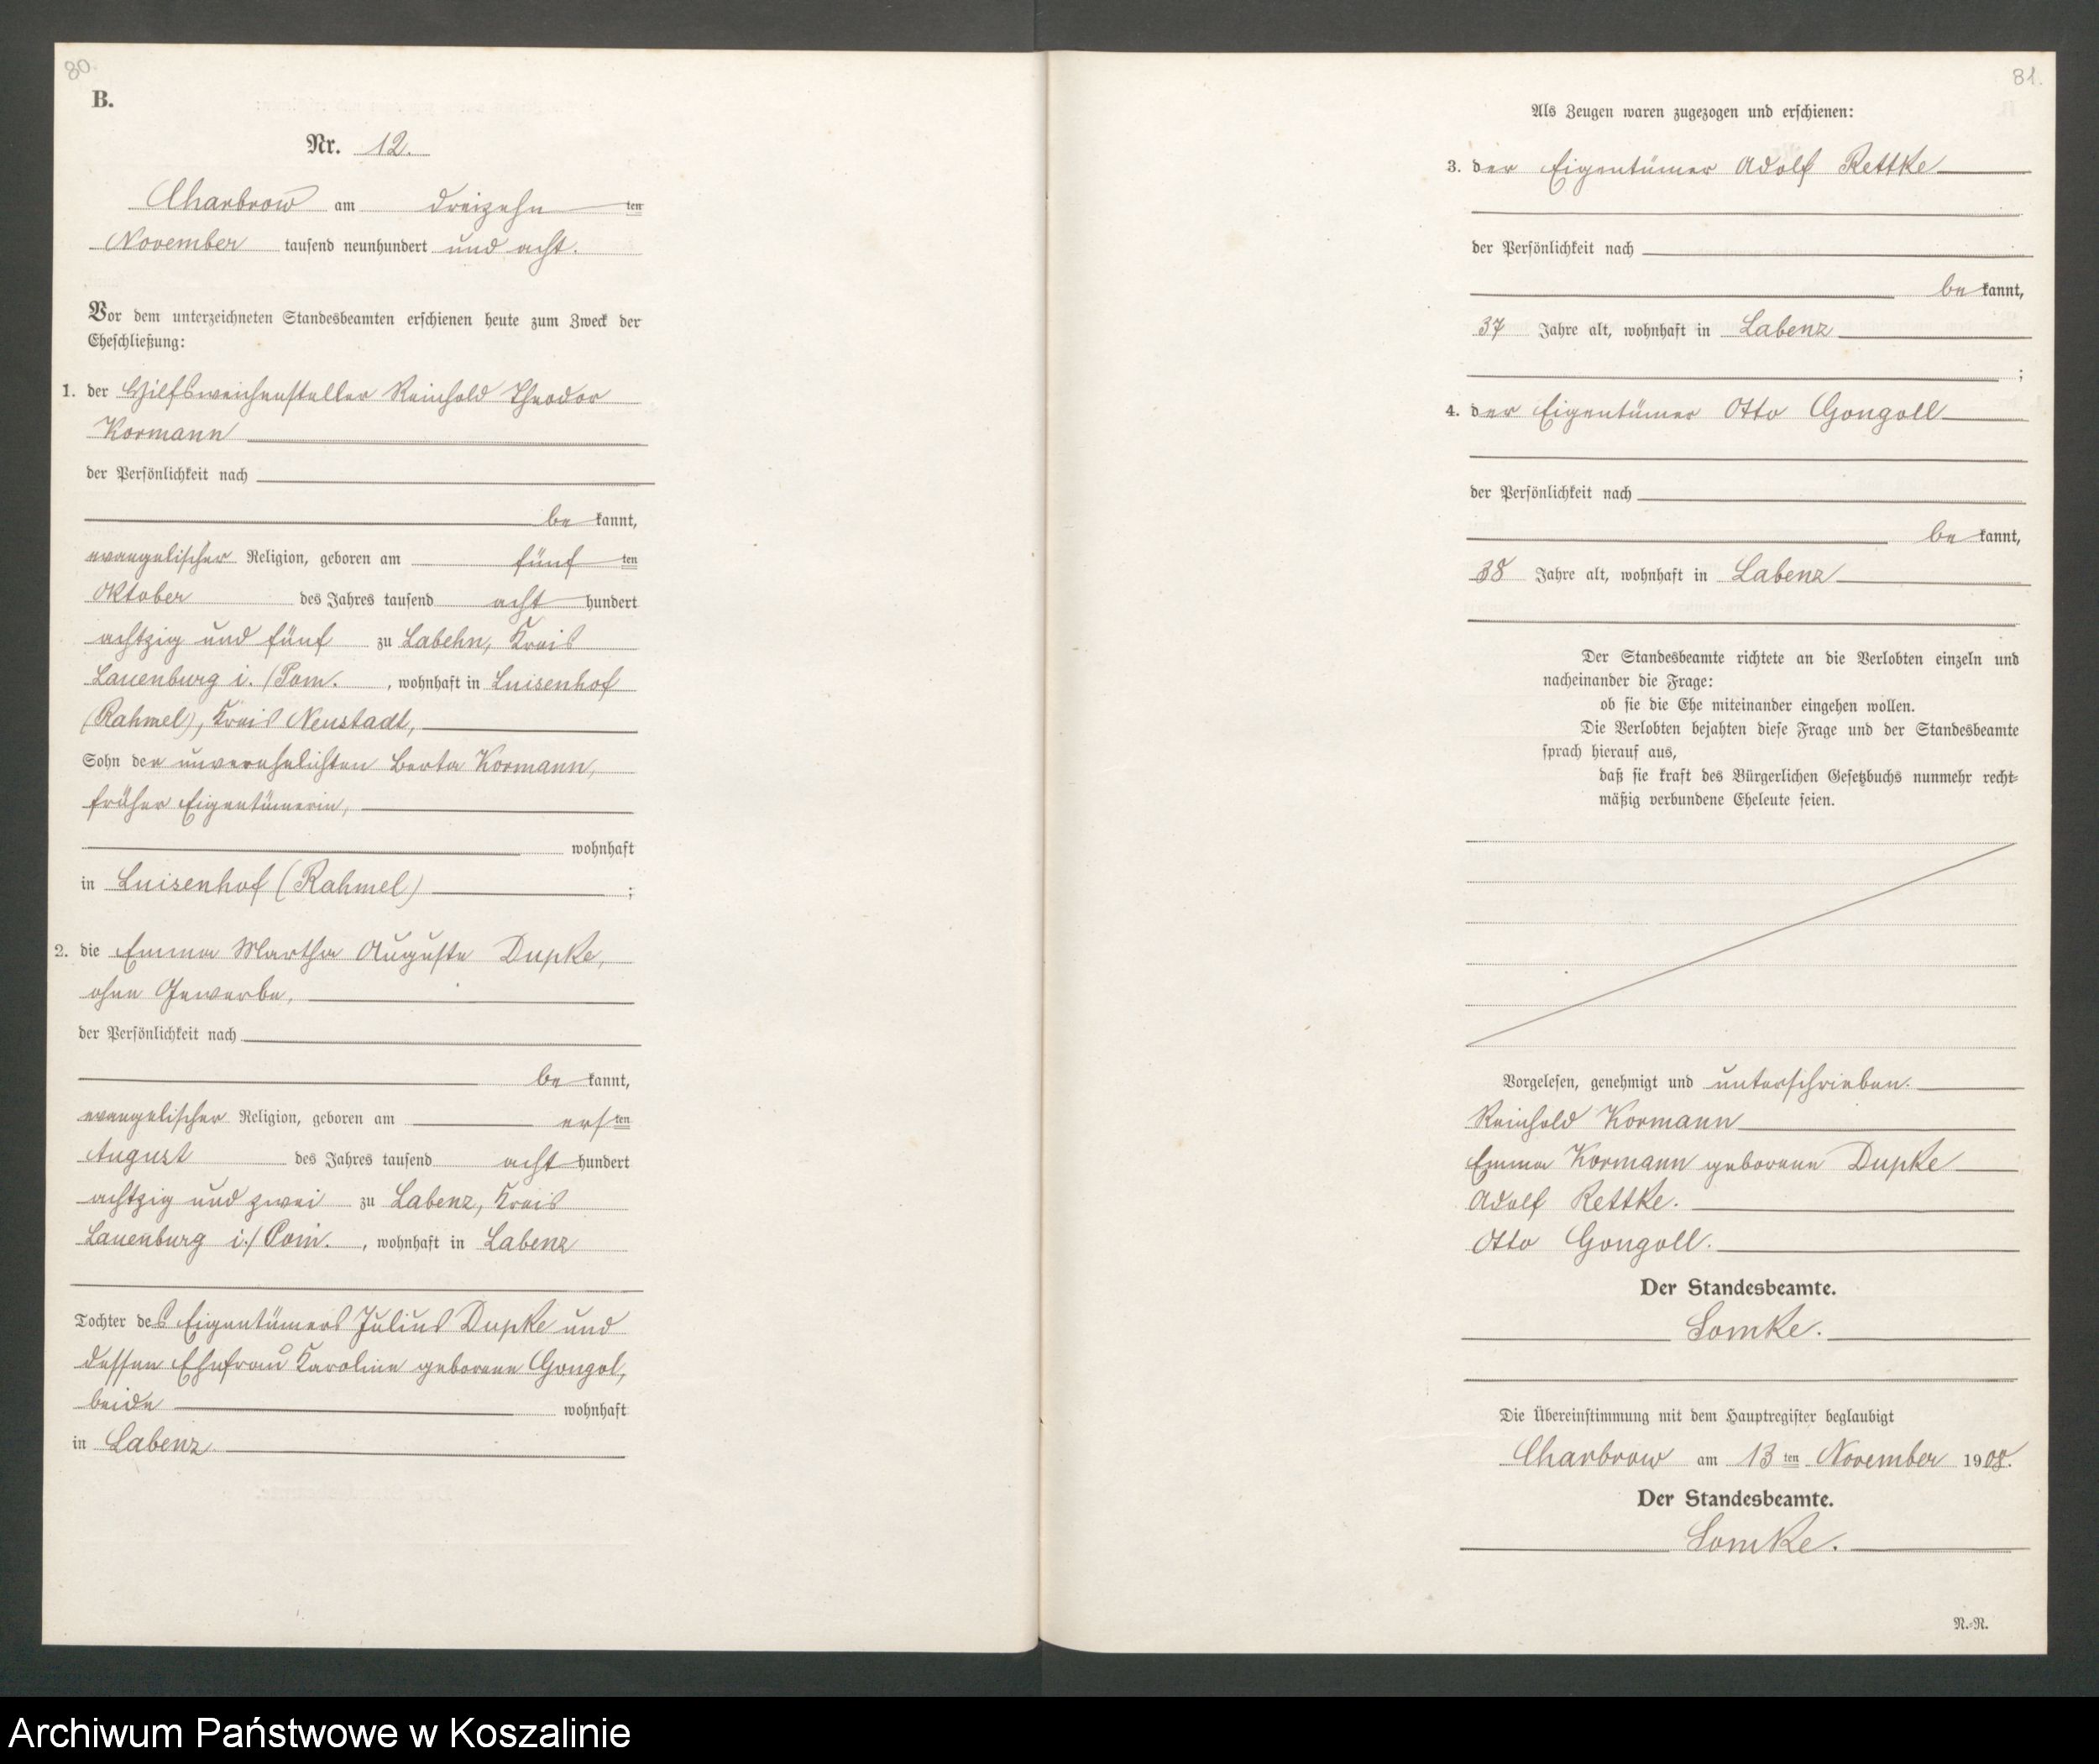 80.
B.
Nr. 12.
Charbrow am dreizehn ten
November tausend neunhundert und acht.
Vor dem unterzeichneten Standesbeamten erschienen heute zum Zweck der
Eheschließung:
1. der Hilfsweichensteller Reinhold Theodor
Kormann
der Persönlichkeit nach
be kannt,
evangelischer Religion, geboren am fünf ten
Oktober des Jahres tausend acht hundert
achtzig und fünf zu Labehn, Kreis
Lauenburg i./Pom. , wohnhaft in Luisenhof
(Rahmel), Kreis Neustadt,
Sohn der unverehelichten Berta Kormann,
früher Eigentümerin,
wohnhaft
in Luisenhof (Rahmel) ;
2. die Emma Martha Auguste Dupke,
ohne Gewerbe,
der Persönlichkeit nach
be kannt,
evangelischer Religion, geboren am ers ten
August des Jahres tausend acht hundert
achtzig und zwei zu Labenz, Kreis
Lauenburg i./Pom. , wohnhaft in Labenz
Tochter des Eigentümers Julius Dupke und
dessen Ehefrau Karoline geborene Gongol,
beide wohnhaft
in Labenz
81.
Als Zeugen waren zugezogen und erschienen:
3. der Eigentümer Adolf Rettke
der Persönlichkeit nach
be kannt,
37 Jahre alt, wohnhaft in Labenz
;
4. der Eigentümer Otto Gongoll
der Persönlichkeit nach
be kannt,
38 Jahre alt, wohnhaft in Labenz
Der Standesbeamte richtete an die Verlobten einzeln und
nacheinander die Frage:
ob sie die Ehe miteinander eingehen wollen.
Die Verlobten bejahten diese Frage und der Standesbeamte
sprach hierauf aus,
daß sie kraft des Bürgerlichen Gesetzbuchs nunmehr recht-
mäßig verbundene Eheleute seien.
Vorgelesen, genehmigt und unterschrieben.
Reinhold Kormann
Emma Kormann geborene Dupke
Adolf Rettke.
Otto Gongoll.
Der Standesbeamte.
Lomke.
Die Übereinstimmung mit dem Hauptregister beglaubigt
Charbrow am 13 ten November 1908.
Der Standesbeamte.
Lomke.
N.-N.
Archiwum Państwowe w Koszalinie